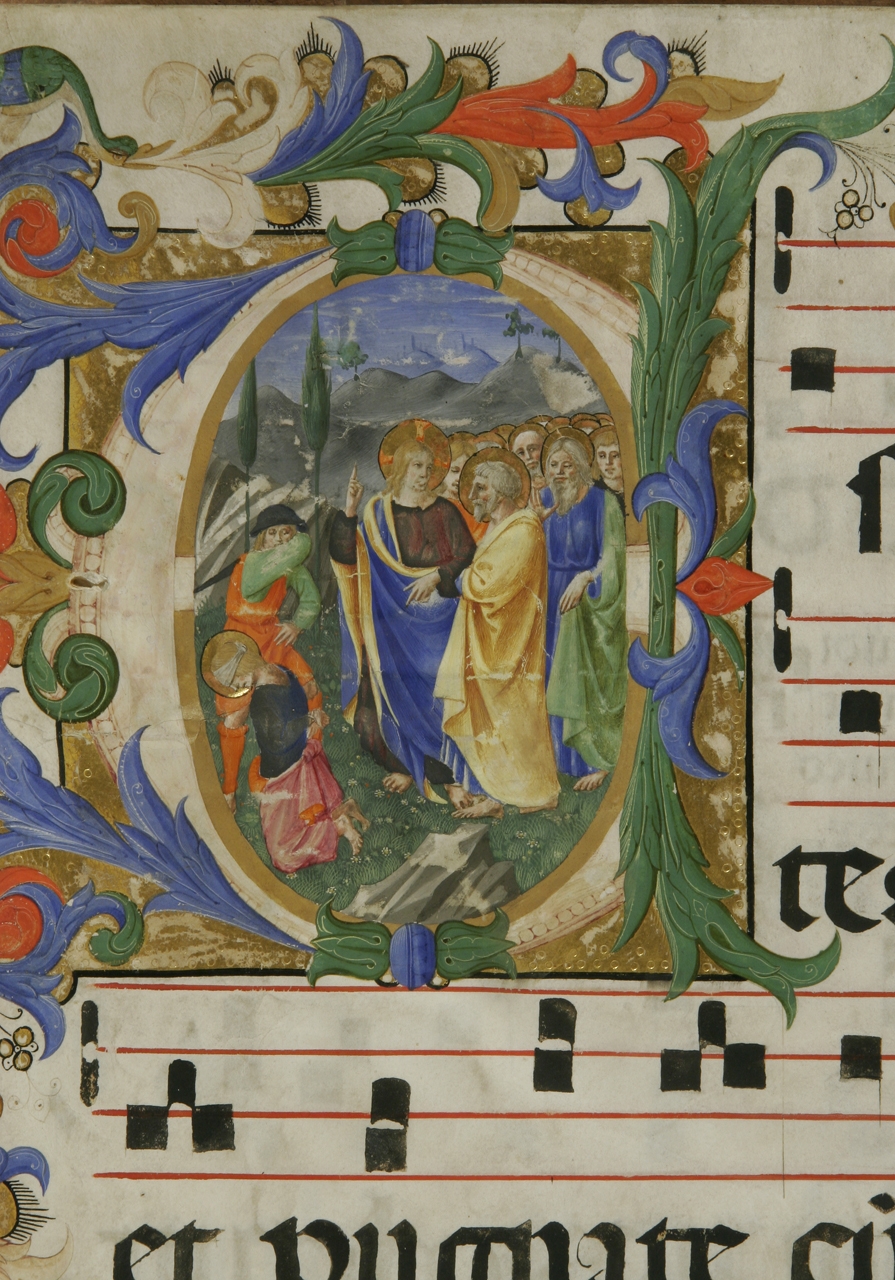 tes
et pugnate